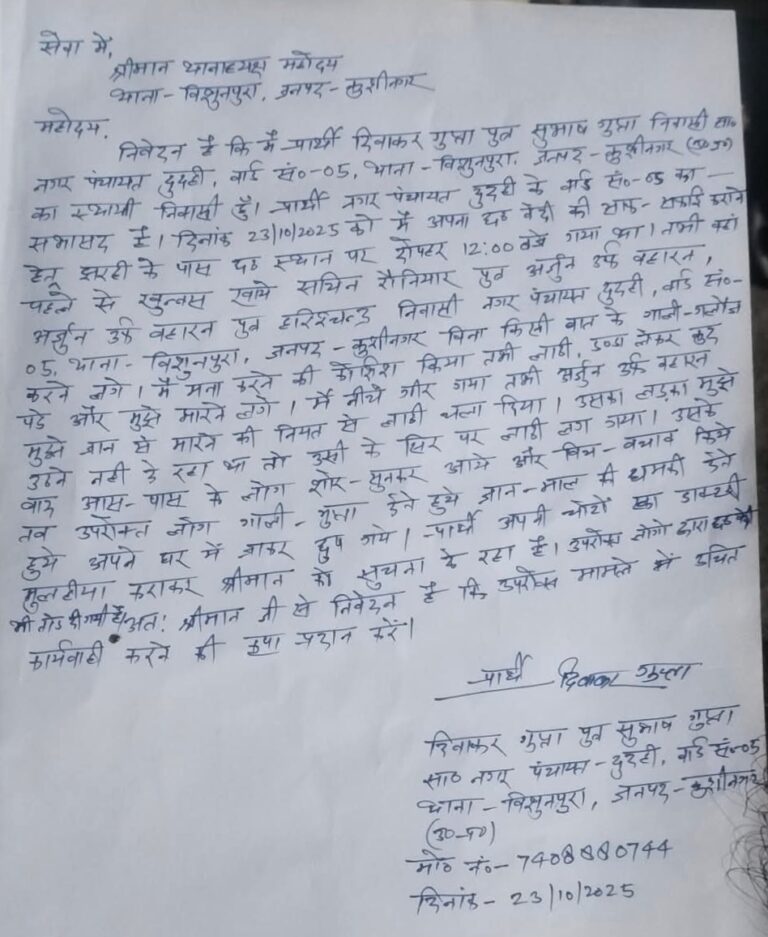 सेवा में,
श्रीमान थानाध्यक्ष महोदय
थाना - विशुनपुरा, जनपद - कुशीनगर
महोदय,
निवेदन है कि मैं प्रार्थी दिवाकर गुप्ता पुत्र सुभाष गुप्ता निवासी सा०
नगर पंचायत दुदही, वार्ड सं०-05, थाना - विशुनपुरा, जनपद - कुशीनगर (उ०प्र०)
का स्थायी निवासी हूँ। प्रार्थी नगर पंचायत दुदही के वार्ड सं०-05 का
सभासद है। दिनांक 23/10/2025 को मैं अपना छठ वेदी की साफ-सफाई कराने
हेतु झरही के पास छठ स्थान पर दोपहर 12:00 बजे गया था। तभी वहां
पहले से खुन्नस खाये सचिन रौनियार पुत्र अर्जुन उर्फ बहारन,
अर्जुन उर्फ बहारन पुत्र हरिश्चन्द्र निवासी नगर पंचायत दुदही, वार्ड सं०-
05, थाना - विशुनपुरा, जनपद - कुशीनगर बिना किसी बात के गाली-गलौज
करने लगे। मैं मना करने की कोशिश किया तभी लाठी, डण्डा लेकर कूद
पड़े और मुझे मारने लगे। मैं नीचे गीर गया तभी अर्जुन उर्फ बहारन
मुझे जान से मारने की नियत से लाठी चला दिया। उसका लड़का मुझे
उठने नही दे रहा था तो उसी के सिर पर लाठी लग गया। उसके
बाद आस-पास के लोग शोर-सुनकर आये और बिच-बचाव किये
तब उपरोक्त लोग गाली-गुप्ता देते हुये जान-माल की धमकी देते
हुये अपने घर में जाकर छुप गये। प्रार्थी अपनी चोटों का डाक्टरी
मुलहीजा कराकर श्रीमान को सुचना दे रहा है। उपरोक्त लोगो द्वारा छठ वेदी
भी तोड़ दी गयी है। अतः श्रीमान जी से निवेदन है कि उपरोक्त मामले में उचित
कार्यवाही करने की कृपा प्रदान करें।
प्रार्थी दिवाकर गुप्ता
दिवाकर गुप्ता पुत्र सुभाष गुप्ता
सा० नगर पंचायत - दुदही, वार्ड सं०-05
थाना - विशुनपुरा, जनपद - कुशीनगर
(उ०प्र०)
मो० नं० - 7408880744
दिनांक - 23/10/2025